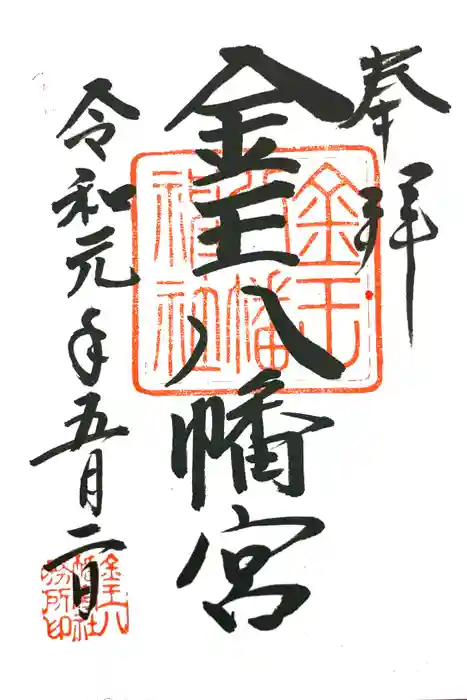 奉拝
金王八幡宮
金王八幡神社
令和元年五月二日
金王八幡神社社務所印